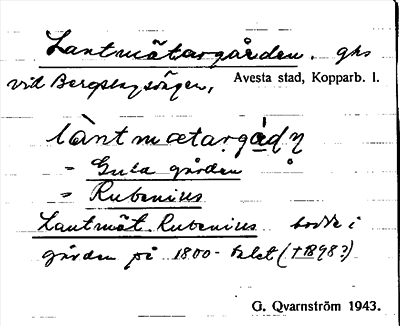 Lantmätargården. ghs
vid Bergslagsvägen,
Avesta stad, Kopparb. l.
làntmætargå̀dη
= Gula gården
= Rubenius
Lantmät. Rubenius bodde i
gården på 1800-talet (†1898?)
G. Qvarnström 1943.